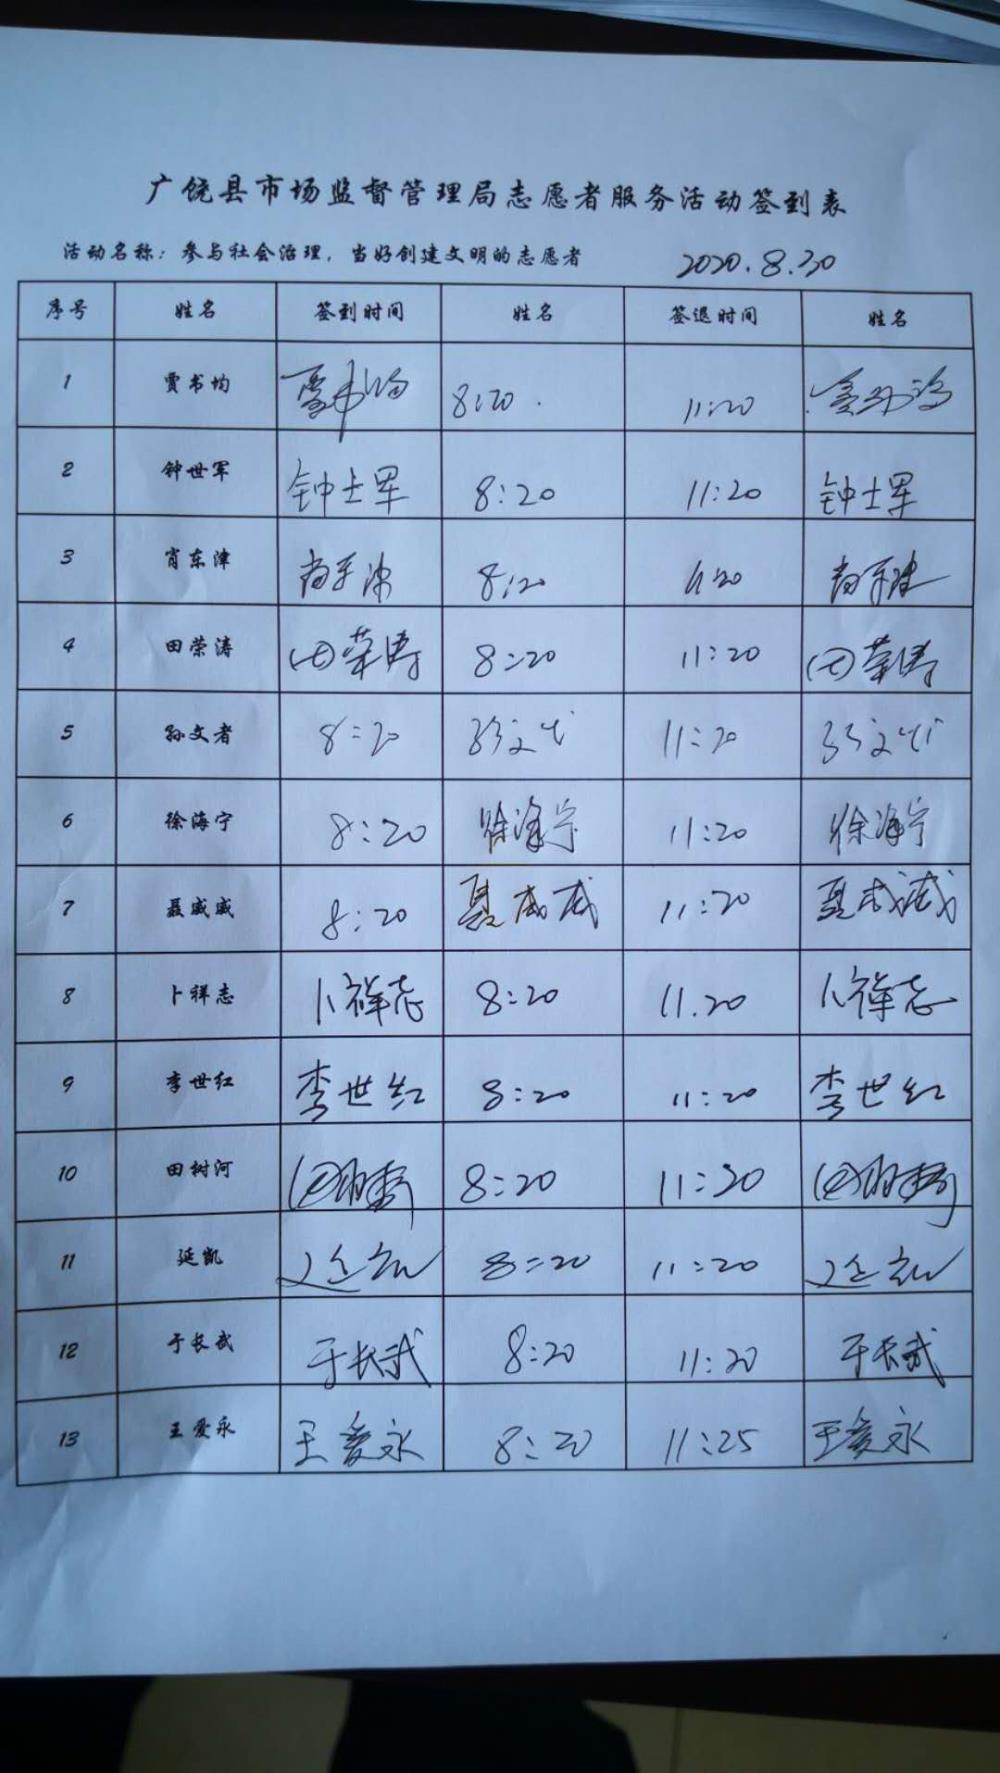 广饶县市场监督管理局志愿者服务活动签到表
活动名称：参与社会治理，当好创建文明的志愿者 2020.8.20
序号 姓名 签到时间 姓名 签退时间 姓名
1 贾书均 贾书均 8:20 11:20 贾书均
2 钟世军 钟士军 8:20 11:20 钟士军
3 肖东津 肖东津 8:20 11:20 肖东津
4 田荣涛 田荣涛 8:20 11:20 田荣涛
5 孙文者 8:20 11:20
6 徐海宁 8:20 徐海宁 11:20 徐海宁
7 聂威威 8:20 聂威威 11:20 聂威威
8 卜祥志 卜祥志 8:20 11.20 卜祥志
9 李世红 李世红 8:20 11:20 李世红
10 田树河 8:20 11:20
11 延凯 延凯 8:20 11:20 延凯
12 于长武 于长武 8:20 11:20 于长武
13 王爱永 王爱永 8:20 11:25 王爱永